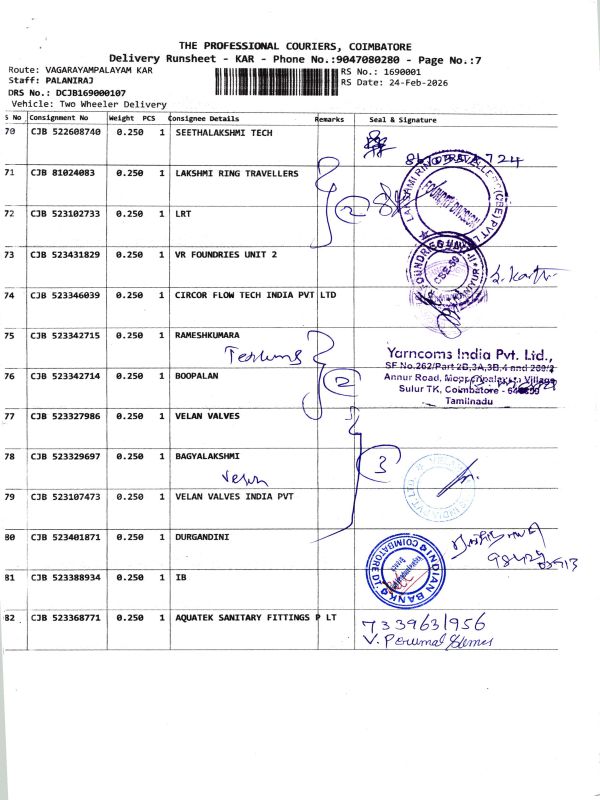 THE PROFESSIONAL COURIERS, COIMBATORE
Delivery Runsheet - KAR - Phone No.:9047080280 - Page No.:7
Route: VAGARAYAMPALAYAM KAR
RS No.: 1690001
Staff: PALANIRAJ
RS Date: 24-Feb-2026
DRS No.: DCJB169000107
Vehicle: Two Wheeler Delivery
S No Consignment No Weight PCS Consignee Details Remarks Seal & Signature
70 CJB 522608740 0.250 1 SEETHALAKSHMI TECH
71 CJB 81024083 0.250 1 LAKSHMI RING TRAVELLERS
2
LAKSHMI RING TRAVELLERS (CBE) PVT L
FOUNDRY DIVISION
72 CJB 523102733 0.250 1 LRT
73 CJB 523431829 0.250 1 VR FOUNDRIES UNIT 2
FOUNDRIES UNIT-II
74 CJB 523346039 0.250 1 CIRCOR FLOW TECH INDIA PVT LTD
75 CJB 523342715 0.250 1 RAMESHKUMARA
2
Yarncoms India Pvt. Ltd.,
SF No.262/Part 2B,3A,3B,4 and 269/2
Annur Road, Village
Sulur TK, Coimbatore -
Tamilnadu
76 CJB 523342714 0.250 1 BOOPALAN
77 CJB 523327986 0.250 1 VELAN VALVES
3
78 CJB 523329697 0.250 1 BAGYALAKSHMI
Velan
79 CJB 523107473 0.250 1 VELAN VALVES INDIA PVT
80 CJB 523401871 0.250 1 DURGANDINI
INDIAN BANK
COIMBATORE DT.
81 CJB 523388934 0.250 1 IB
82 CJB 523368771 0.250 1 AQUATEK SANITARY FITTINGS P LT
7339631956
V. Perumal